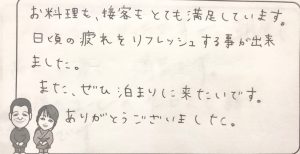 お料理も、接客もとても満足しています。
日頃の疲れをリフレッシュする事が出来
ました。
また、ぜひ泊まりに来たいです。
ありがとうございましたた。